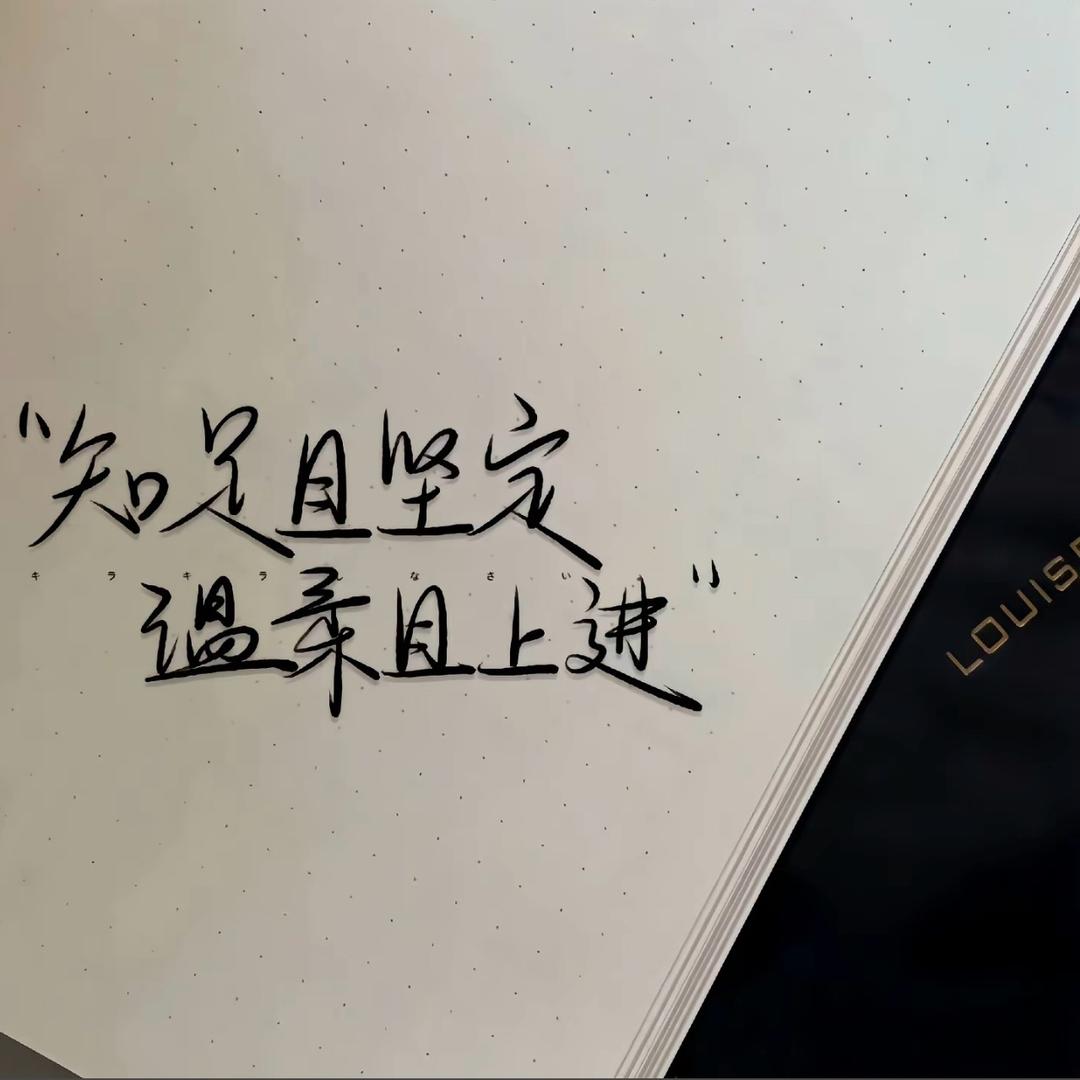 “知足且坚定
キラキラ なさい
温柔且上进”
LOUISE